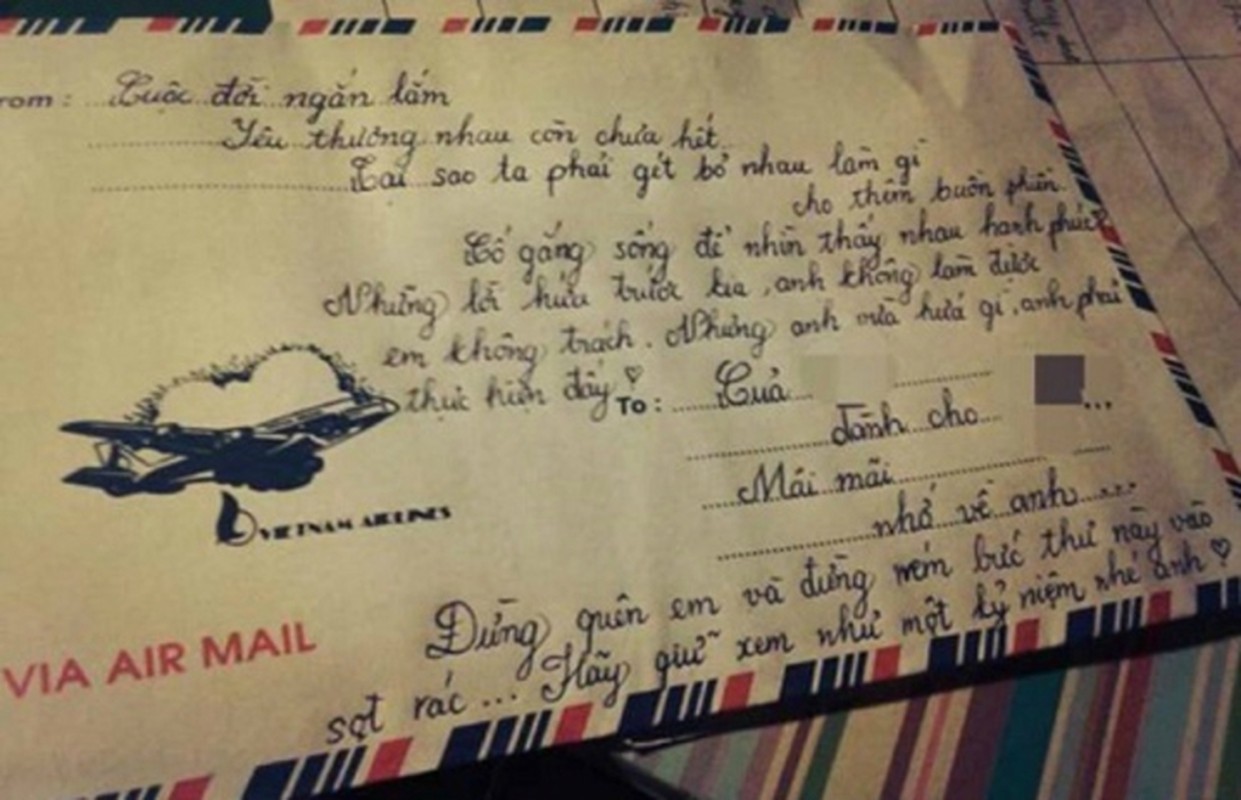 rom : Cuộc đời ngắn lắm
Yêu thương nhau còn chưa hết
Tại sao ta phải gét bỏ nhau làm gì
cho thêm buồn phiền.
Cố gắng sống để nhìn thấy nhau hạnh phúc
Những lời hứa trước kia, anh không làm được
em không trách. Nhưng anh vừa hứa gì, anh phải
thực hiện đấy ♡
To : Của
dành cho ...
Mãi mãi
nhớ về anh ...
VIETNAM AIRLINES
VIA AIR MAIL
Đừng quên em và đừng ném bức thư này vào
sọt rác ... Hãy giữ xem như một kỷ niệm nhé anh ♡